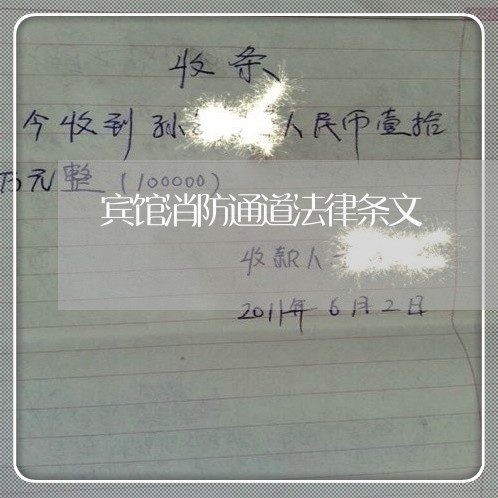 收条
今收到孙 人民币壹拾
万元整（100000）
宾馆消防通道法律条文
收款人
2011年6月2日